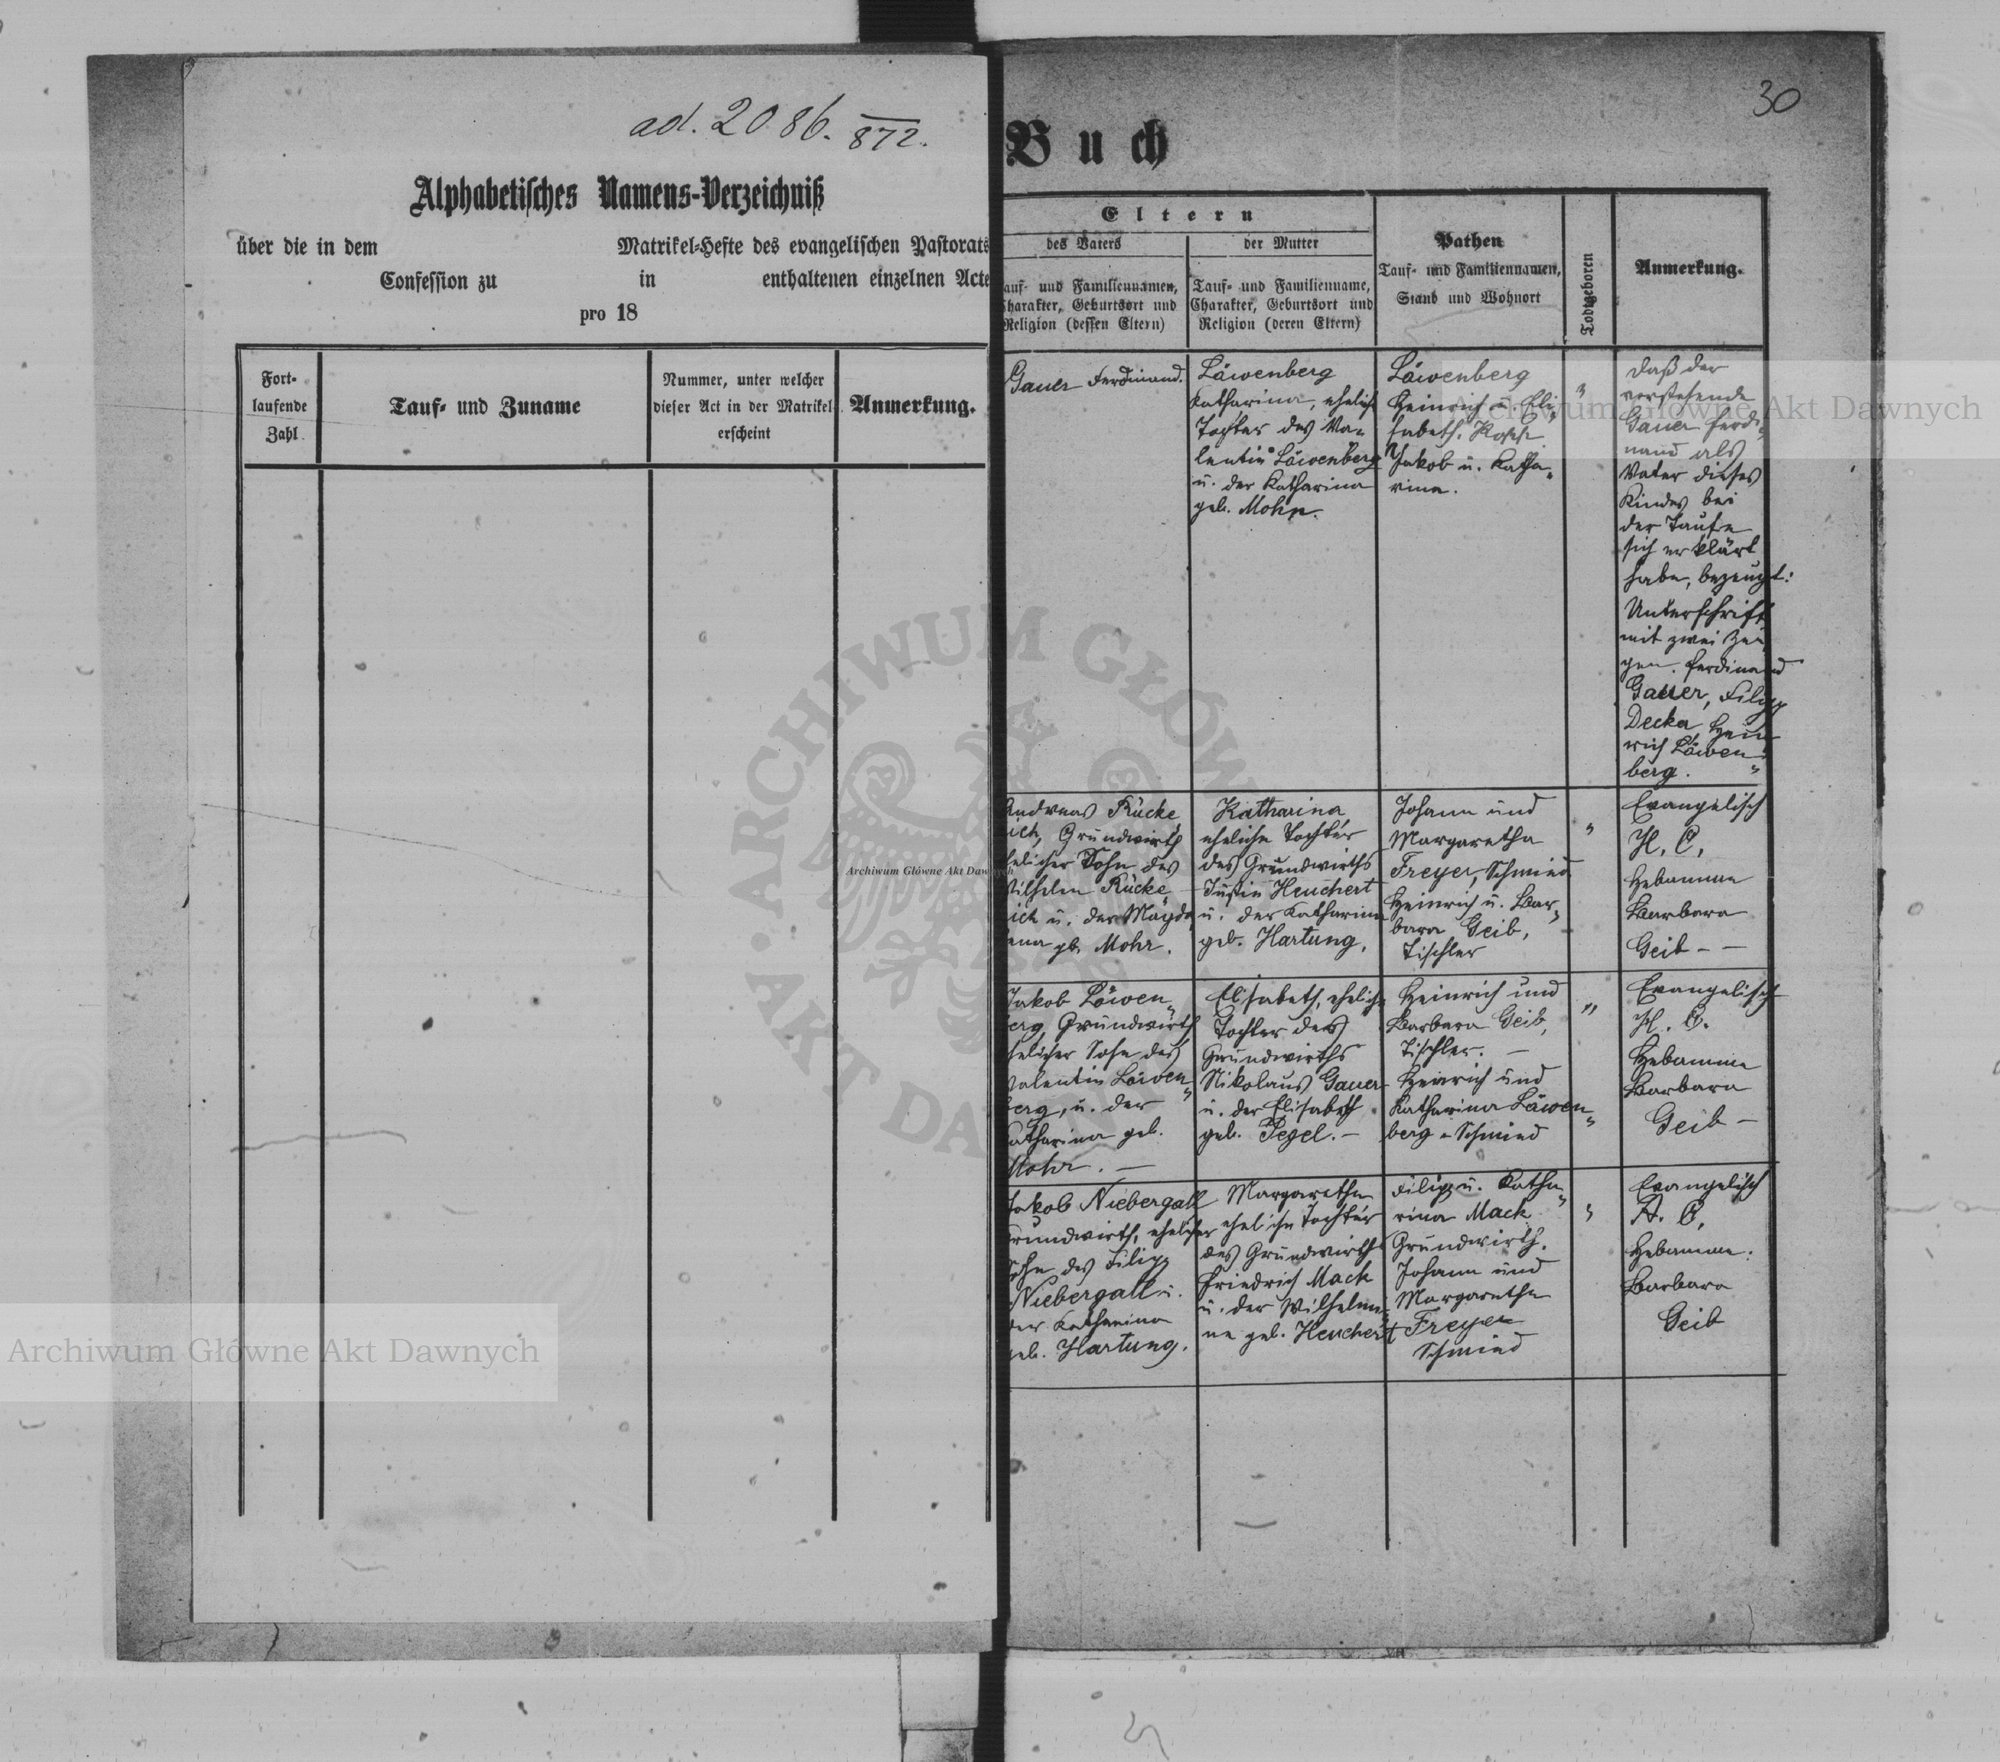 ad. 2086. 872.
Alphabetisches Namens-Verzeichniß
über die in dem Matrikel-Hefte des evangelischen Pastorats
Confession zu in enthaltenen einzelnen Acte
pro 18
Fort-
laufende
Zahl
Tauf- und Zuname
Nummer, unter welcher
dieser Act in der Matrikel
erscheint
Anmerkung.
30
Buch
Eltern
des Vaters
der Mutter
auf- und Familiennamen,
Charakter, Geburtsort und
Religion (dessen Eltern)
Tauf- und Familienname,
Charakter, Geburtsort und
Religion (deren Eltern)
Pathen
Tauf- und Familiennamen,
Stand und Wohnort
Todtgeboren
Anmerkung.
Gauer Ferdinand.
Löwenberg
Katharina, ehelich
Tochter des Va-
lentin Löwenberg
u. der Katharina
geb. Mohr.
Löwenberg
Heinrich u. Eli-
sabeth.
Jakob u. Katha-
rina.
"
Daß der
vorstehende
Gauer Ferdi-
nand als
Vater dieses
Kindes bei
der Taufe
sich erklärt
habe, bezeugt:
Unterschrift
mit zwei Zeu
gen. Ferdinand
Gauer, Filipp
Decker, Hein
rich Löwen
berg. "
Andreas Rücke
ich, Grundwirth
ehelicher Sohn des
Wilhelm Rücke
ich u. der Magda
lena gb. Mohr.
Katharina
eheliche Tochter
des Grundwirths
Justin Heuchert
u. der Katharina
geb. Hartung,
Johann und
Margaretha
Freyer, Schmied
Heinrich u. Bar-
bara Geib,
Tischler
"
Evangelisch
H. C.
Hebamme
Barbara
Geib - -
Jakob Löwen-
berg, Grundwirth
ehelicher Sohn des
Valentin Löwen-
berg, u. der
Katharina geb.
Mohr. -
Elisabeth, eheliche
Tochter des
Grundwirths
Nikolaus Gauer
u. der Elisabeth
geb. Pegel. -
Heinrich und
Barbara Geib,
Tischler. -
Heinrich und
Katharina Löwen-
berg - Schmied
"
Evangelisch
H. C.
Hebamme
Barbara
Geib -
Jakob Niebergall
Grundwirth, ehelicher
Sohn des Filipp
Niebergall u.
der Katharina
geb. Hartung.
Margaretha
eheliche Tochter
des Grundwirths
Friedrich Mack
u. der Wilhelmi-
ne geb. Heuchert
Filipp u. Katha-
rina Mack
Grundwirth.
Johann und
Margaretha
Freyer
Schmied
"
Evangelisch
A. C.
Hebamme.
Barbara
Geib
Archiwum Główne Akt Dawnych
ARCHIWUM GŁÓWNE AKT DAWNYCH
Archiwum Główne Akt Dawnych
Archiwum Główne Akt Dawnych